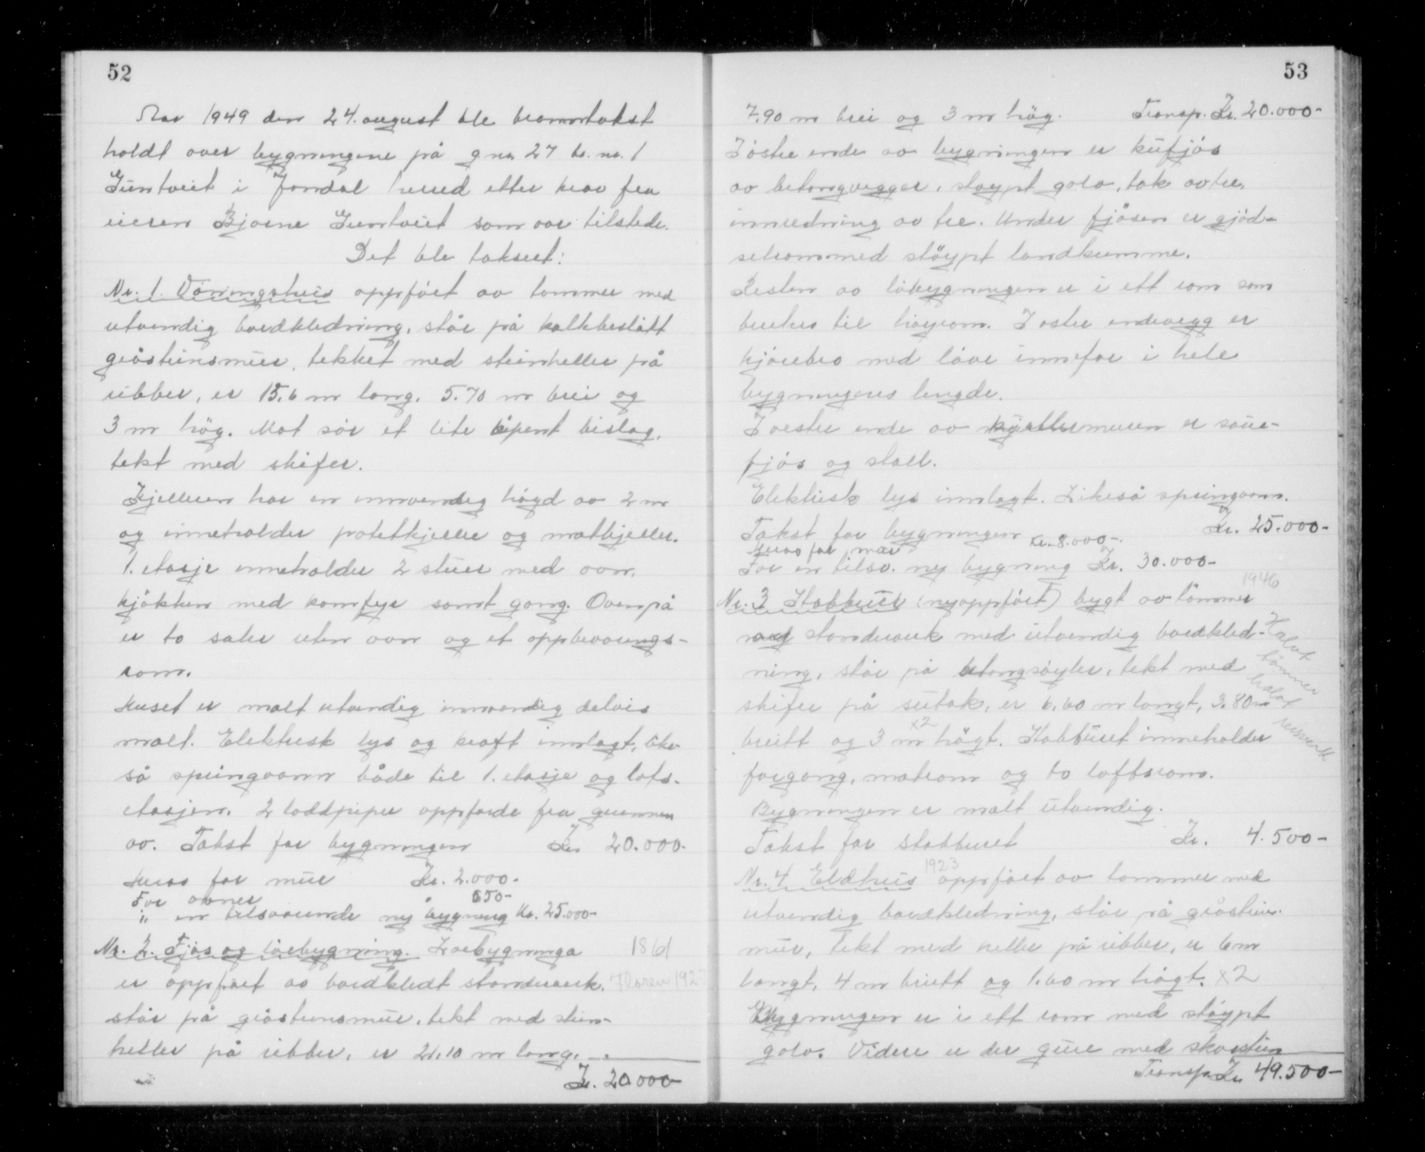 52
Aar 1949 den 24. august ble branntakst
holdt over bygningene på gnr. 27 br. nr. 1
Tuntveit i Jondal herred etter krav fra
eieren Bjarne Tuntveit som var tilstede.
Det ble taksert:
Nr. 1. Våningshus oppført av tømmer med
utvendig bordkledning, står på kalkbeslått
gråsteinsmur, tekket med steinheller på
ribber, er 15,6 m lang, 5.70 m brei og
3 m høg. Mot sør et lite åpent bislag,
tekt med skifer.
Kjelleren har en innvendig høgd av 2 m
og inneholder potetkjeller og matkjeller.
1. etasje inneholder 2 stuer med ovn,
kjøkken med komfyr samt gang. Ovenpå
er to saler uten ovn og et oppbevarings-
rom.
Huset er malt utvendig innvendig delvis
malt. Elektrisk lys og kraft innlagt, like-
så springvann både til 1. etasje og lofts-
etasjen. 2 loddpiper oppførde fra grunnen
av. Takst for bygningen Kr. 20.000.
Herav for mur Kr. 2.000-
For ovner 650-
" en tilsvarende ny bygning Kr. 25.000-
Nr. 2. Fjøs og løebygning. Løebygninga 1861
er oppført av bordkledt standverk,
står på gråsteinsmur, tekt med stein-
heller på ribber, er 21.10 m lang,
Kr. 20.000-
53
7.90 m brei og 3 m høg. Transp. Kr. 20.000-
I østre ende av bygningen er kufjøs
av betongvegger, støypt golv, tak av tre,
innredning av tre. Under fjøsen er gjød-
selrom med støypt landkumme.
Resten av løbygningen er i ett rom som
brukes til høyrom. I østre endevegg er
kjørebro med låve innefor i hele
bygningens lengde.
I vestre ende av kjellermuren er saue-
fjøs og stall.
Elektrisk lys innlagt. Likeså springvann.
Takst for bygningen Kr. 25.000-
Herav for mur Kr. 8.000-
For en tilsv. ny bygning Kr. 30.000-
1946
Nr. 3 Stabbur (nyoppført) bygt av tømmer
og standverk med utvendig bordkled-
ning, står på betongsøyler, tekt med
Halvt tømmer halvt reisverk
skifer på sutak, er 6,60 m langt, 3.80 m
x2
breitt og 3 m høgt. Stabburet inneholder
forgang, matrom og to loftsrom.
Bygningen er malt utvendig.
Takst for stabburet Kr. 4.500-
1923
Nr. 4 Eldhus oppført av tømmer med
utvendig bordkledning, står på gråstein-
mur, tekt med heller på ribber, er 6 m
langt, 4 m breitt og 1.60 m høgt. x2
Bygningen er i ett rom med støypt
golv. Videre er der grue med skorstein
Transp. Kr. 49.500-